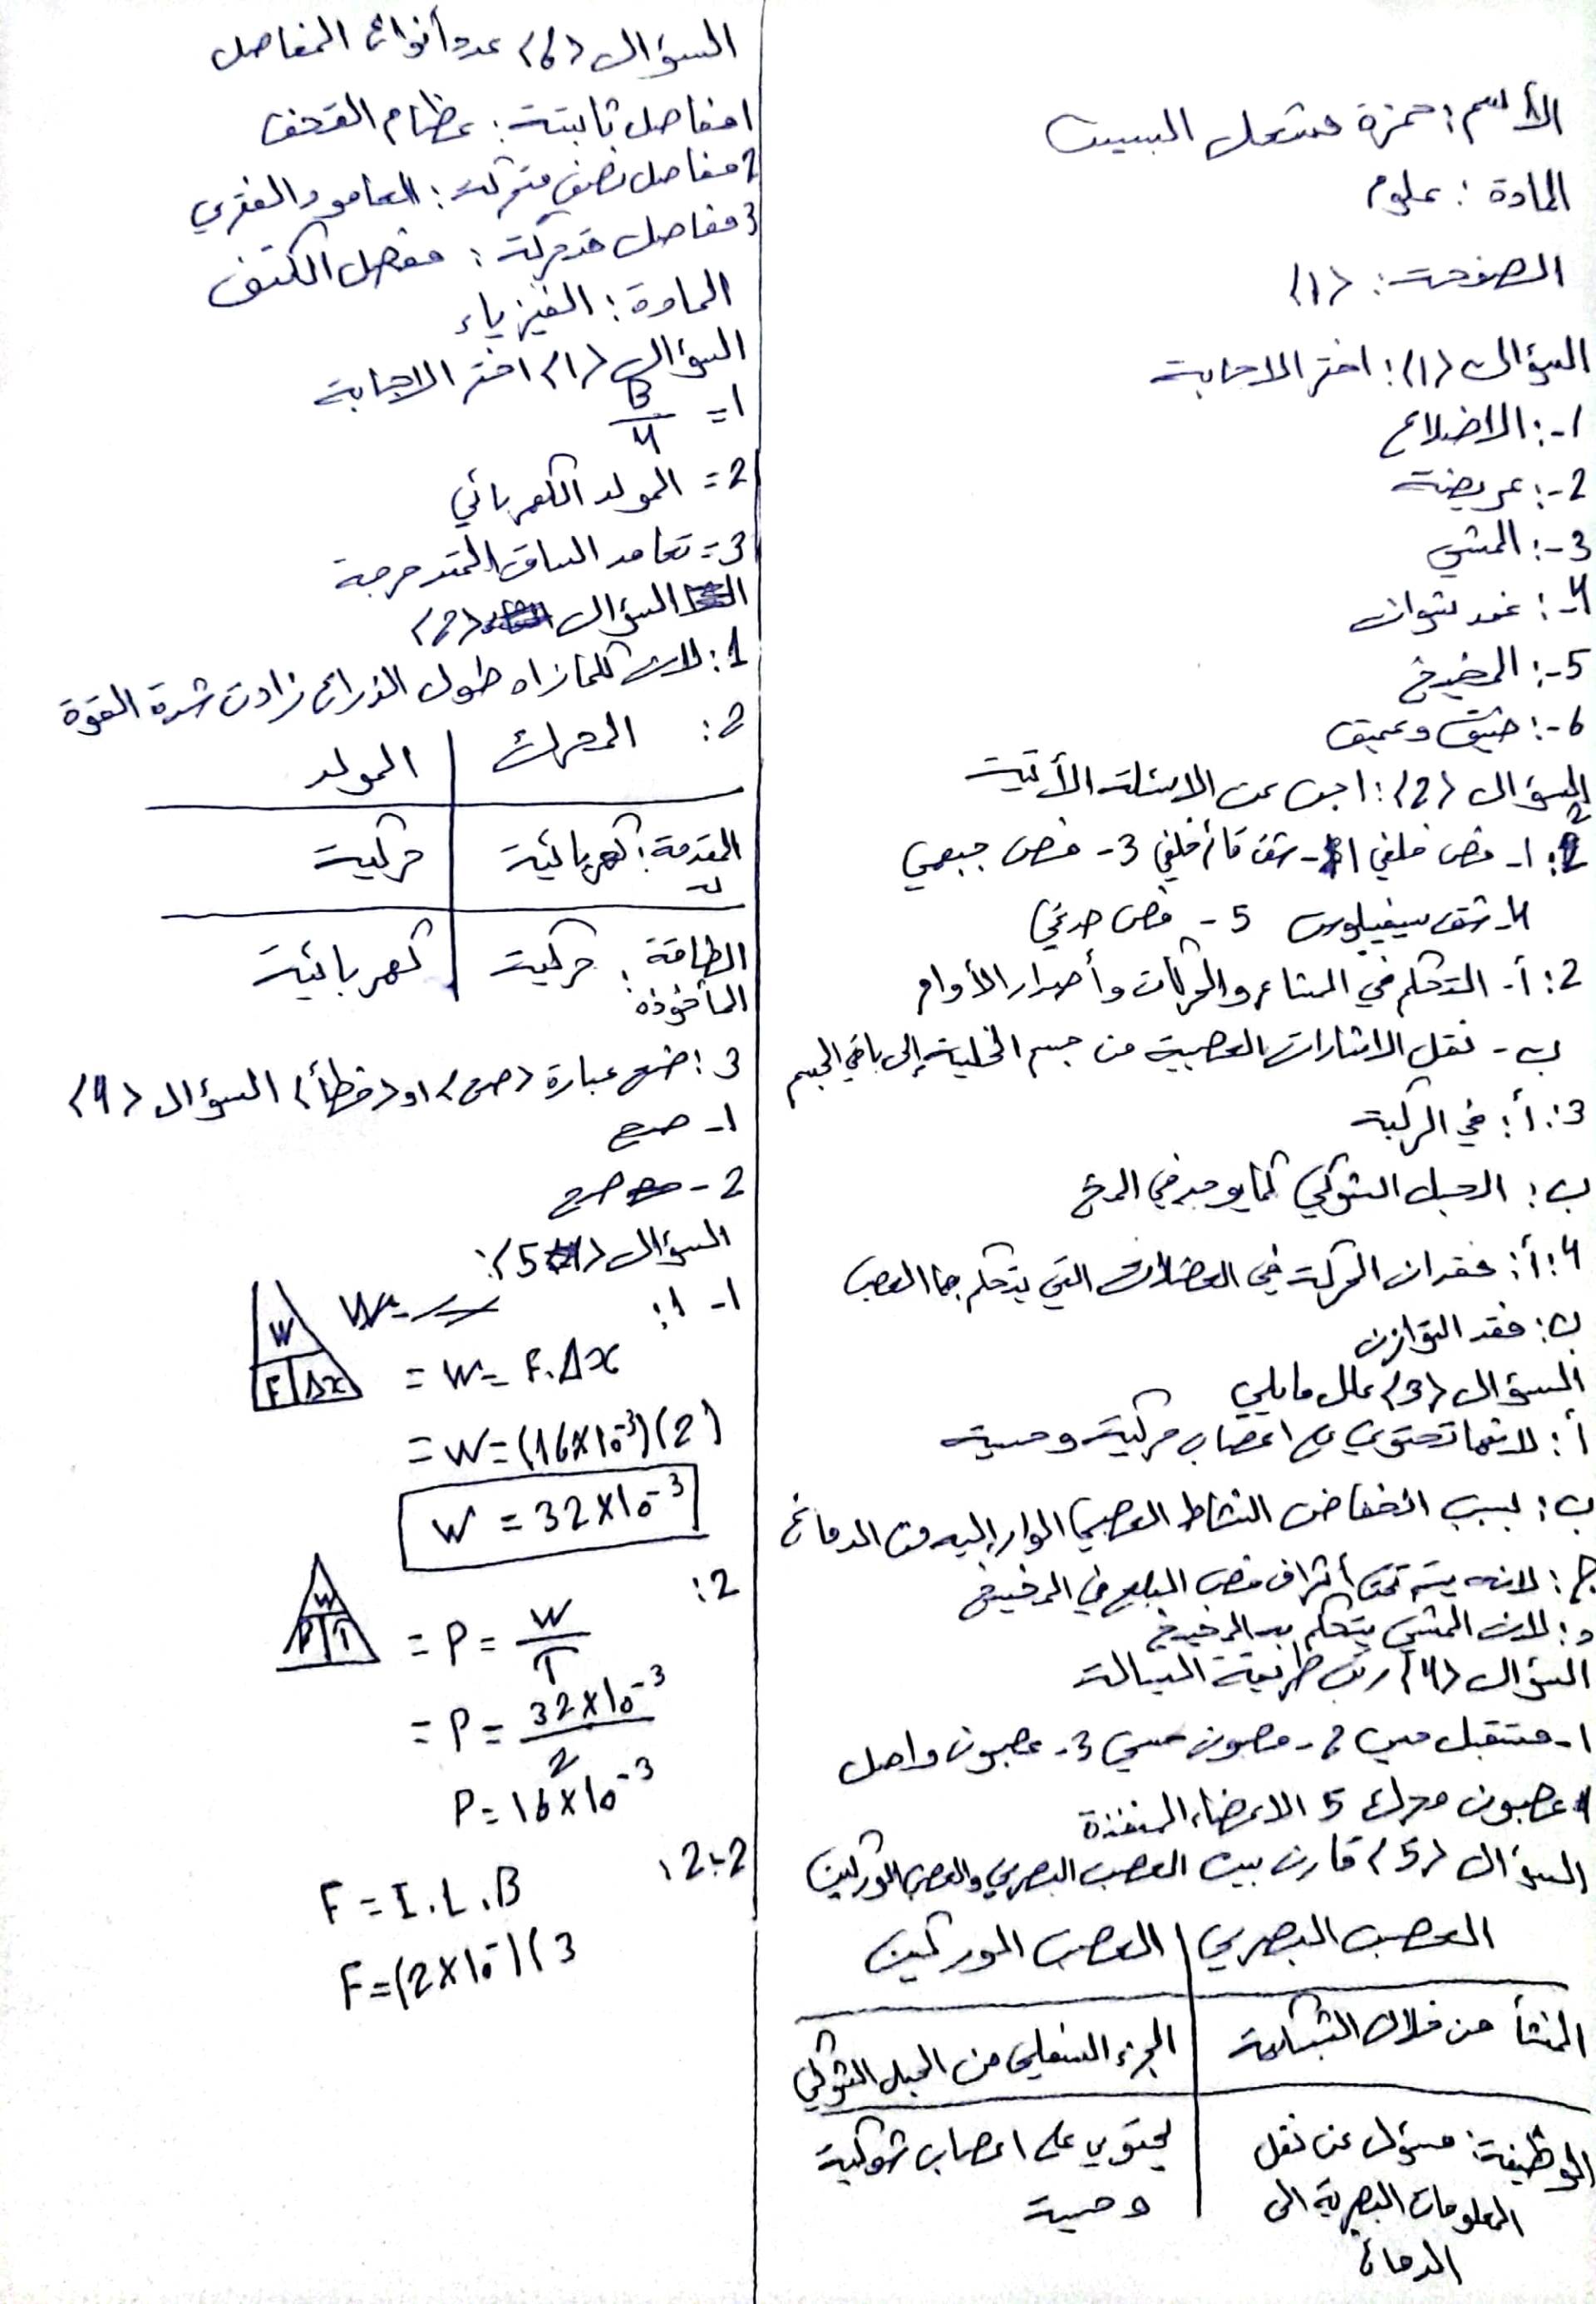 الأسم: حمزة مشعل السيت
المادة: علوم
الصفحة: <1>
السؤال <1>: اختر الاجابة
1-: الاضلاع
2-: عريضة
3-: المشي
4-: غمد شوان
5-: المخيخ
6-: ضيق وعميق
السؤال <2>: اجب عن الاسئلة الأتية
1: 1- فص خلفي 2- شق قائم خلفي 3- فص جبهي
4- شق سيفيلوس 5- فص صدغي
2: أ- التحكم في المشاعر والحركات وأصدار الأوامر
ب- نقل الاشارات العصبية من جسم الخلية إلى باقي الجسم
3: أ: في الركبة
ب: الحبل الشوكي كما يوجد في المخ
4: أ: فقدان الحركة في العضلات التي يتحكم بها العصب
ب: فقد التوازن
السؤال <3> علل مايلي
أ: لانها تحتوي على اعصاب حركية وحسية
ب: بسبب انخفاض النشاط العصبي الوارد إليه من الدماغ
ج: لانه يتم تحت أشراف فص البلع في المخيخ
د: لان المشي يتحكم به المخيخ
السؤال <4> رتب طريقة السيالة
1- مستقبل حسي 2- عصبون حسي 3- عصبون واصل
4 عصبون محرك 5 الاعضاء المنفذة
السؤال <5> قارن بين العصب البصري والعصب الوركين
العصب البصري | العصب الوركين
المنشأ من خلال الشبكية | الجزء السفلي من الحبل الشوكي
الوظيفة: مسؤل عن نقل | يحتوي على اعصاب شوكية
المعلومات البصرية الى | وحسية
الدماغ
السؤال <6> عدد أنواع المفاصل
1 مفاصل ثابتة: عظام القحف
2 مفاصل نصف متحركة: العامود الفقري
3 مفاصل متحركة: مفصل الكتف
المادة: الفيزياء
السؤال <1> اختر الاجابة
1= B/4
2= المولد الكهربائي
3= تعامد الساق المتدحرجة
السؤال <2>
1: لان كلما زاد طول الذراع زادت شدة القوة
2: المحرك | المولد
المقدمة: كهربائية | حركية
الطاقة المأخوذة: حركية | كهربائية
3: ضع عبارة <صح> او <خطأ> السؤال <4>
1- صح
2- صح
السؤال <5>:
1- 1:
W
F | Δx
= W = F.Δx
= W = (16×10⁻³)(2)
W = 32×10⁻³
2:
W
P | T
= P = W/T
= P = 32×10⁻³/2
P = 16×10⁻³
2-2:
F = I.L.B
F = (2×10⁻)(3